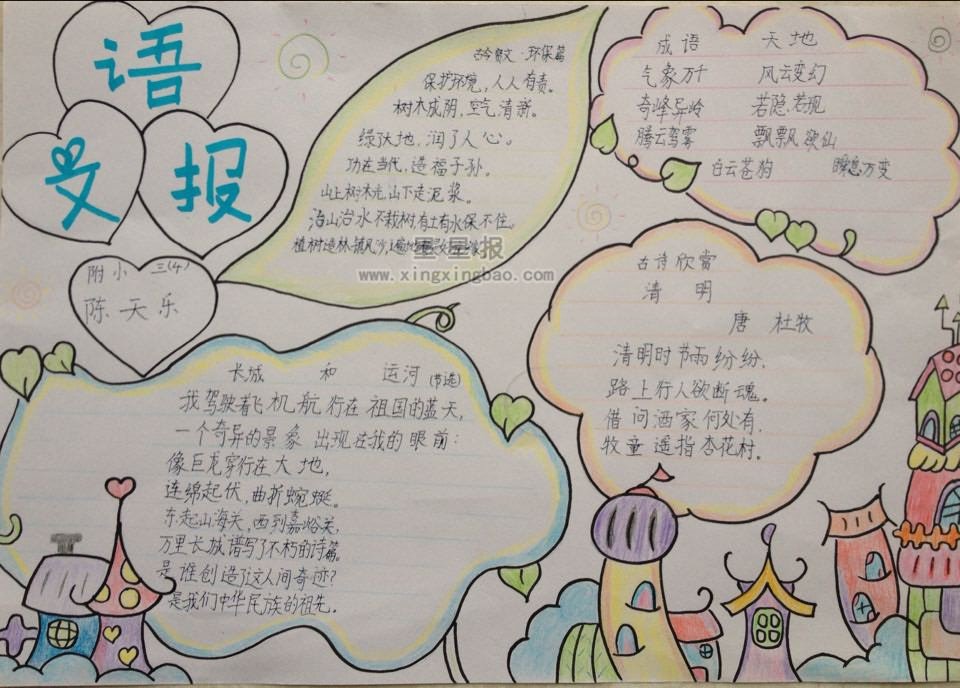 语
文 报
附小 三(4)
陈天乐
古今贤文·环保篇
保护环境，人人有责。
树木成阴，空气清新。
绿水地，润了人心。
功在当代，造福子孙。
山上树木光，山下走泥浆。
治山治水不栽树，有土有水保不住。
植树造林，
星星报
www.xingxingbao.com
成语 天地
气象万千 风云变幻
奇峰异岭 若隐若现
腾云驾雾 飘飘欲仙
白云苍狗 瞬息万变
古诗欣赏
清明
唐 杜牧
清明时节雨纷纷，
路上行人欲断魂。
借问酒家何处有，
牧童遥指杏花村。
长城 和 运河（节选）
我驾驶着飞机航行在祖国的蓝天，
一个奇异的景象出现在我的眼前：
像巨龙穿行在大地，
连绵起伏，曲折蜿蜒。
东起山海关，西到嘉峪关，
万里长城谱写了不朽的诗篇。
是谁创造了这人间奇迹？
是我们中华民族的祖先。